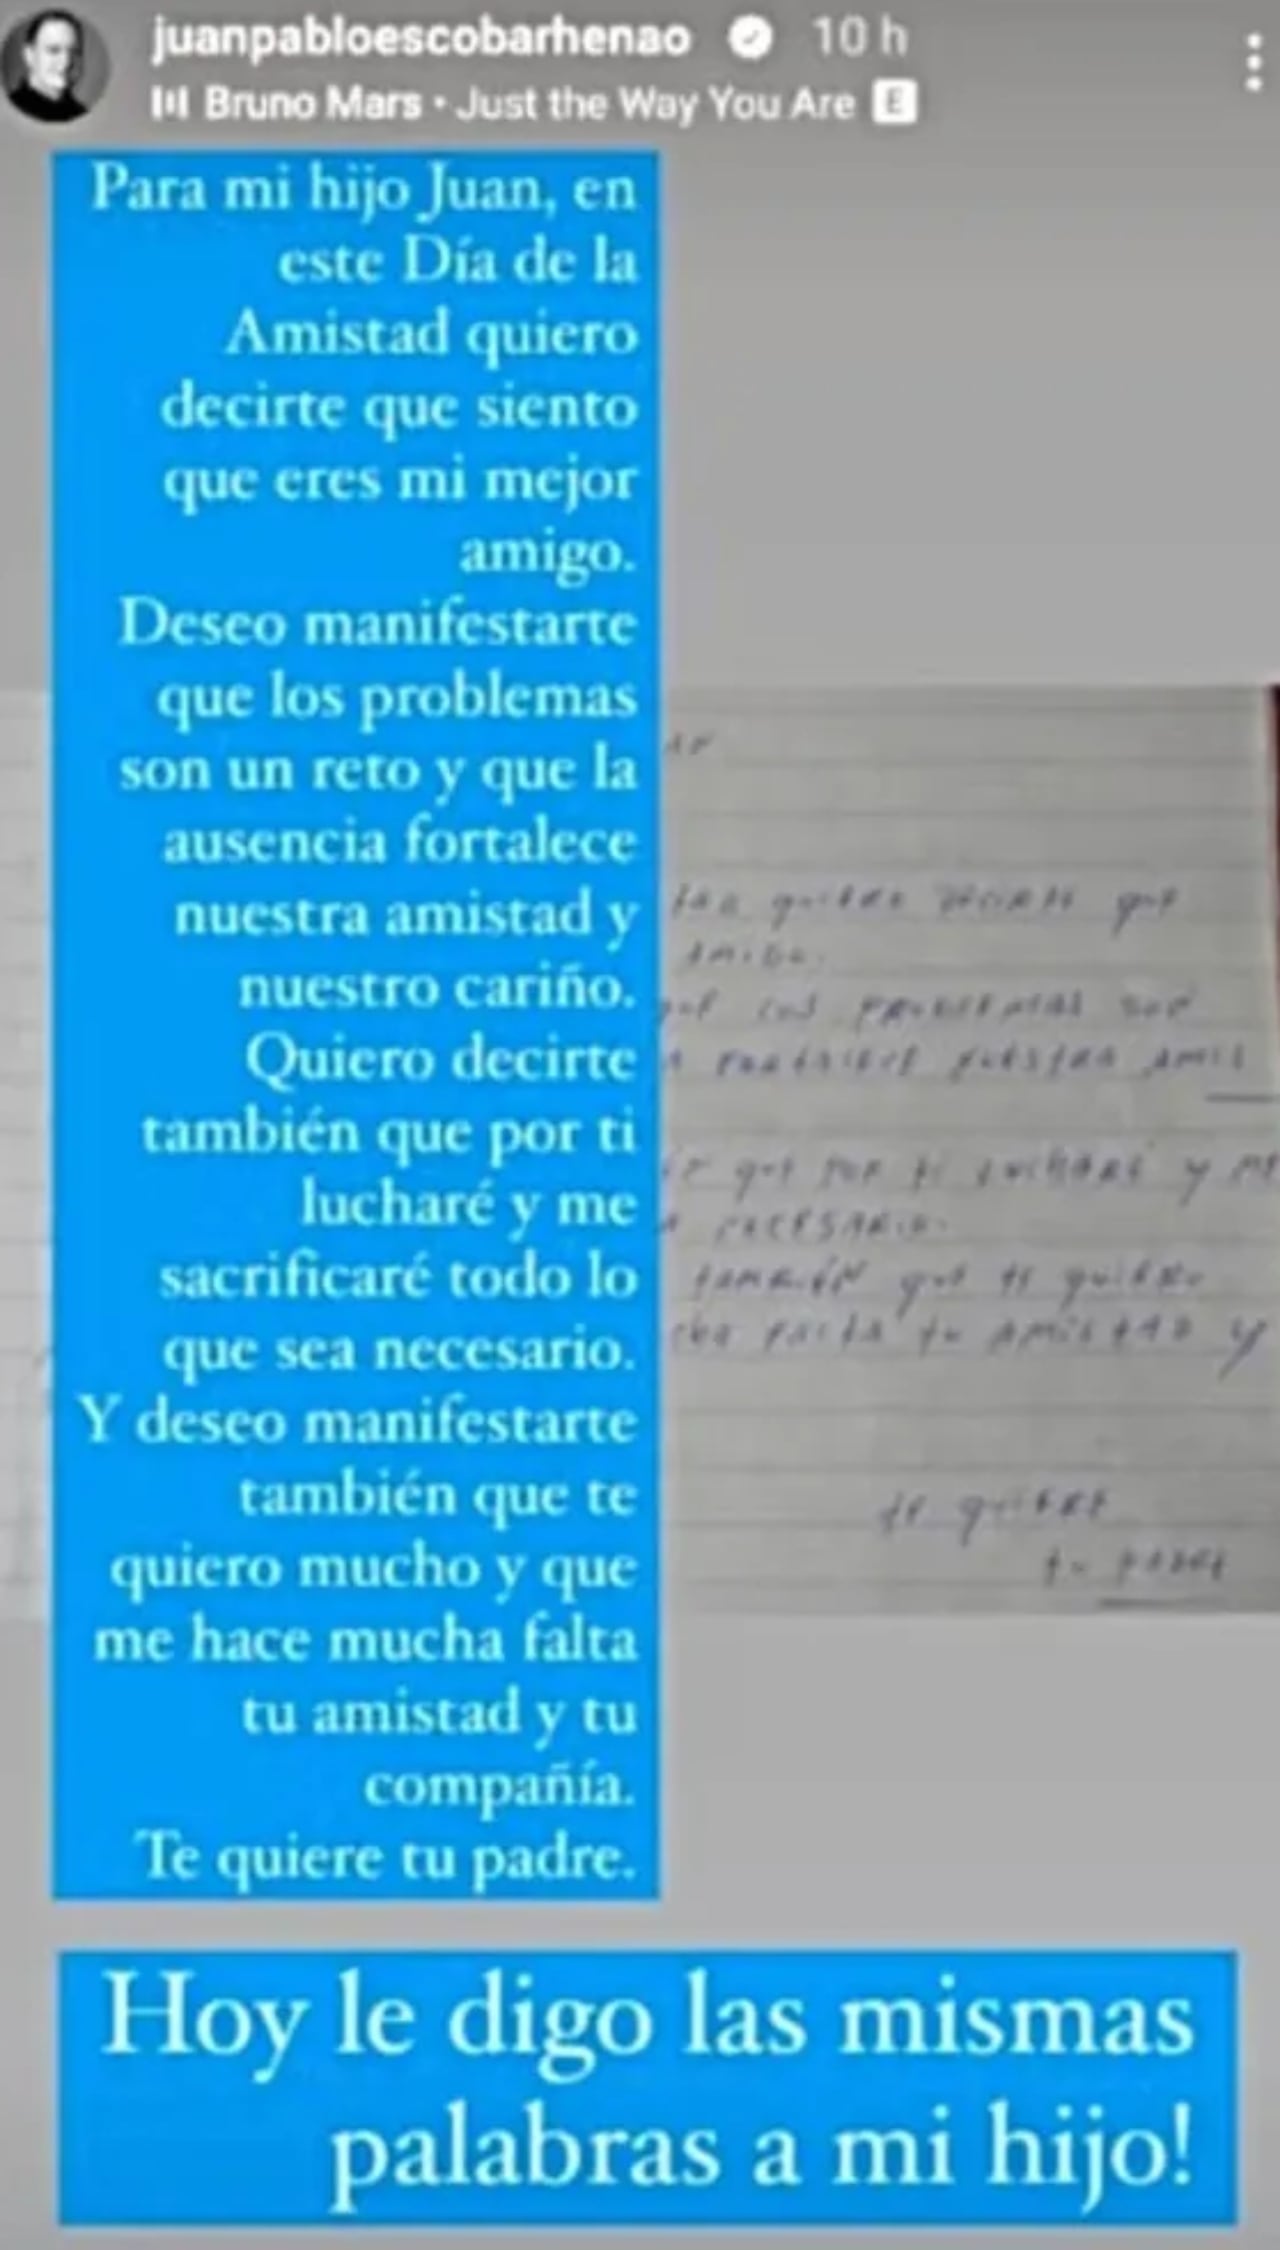 juanpabloescobarhenao 10 h
Bruno Mars • Just the Way You Are E
Para mi hijo Juan, en
este Día de la
Amistad quiero
decirte que siento
que eres mi mejor
amigo.
Deseo manifestarte
que los problemas
son un reto y que la
ausencia fortalece
nuestra amistad y
nuestro cariño.
Quiero decirte
también que por ti
lucharé y me
sacrificaré todo lo
que sea necesario.
Y deseo manifestarte
también que te
quiero mucho y que
me hace mucha falta
tu amistad y tu
compañía.
Te quiere tu padre.
quiero decirte que
amigo.
los problemas son
fortalece nuestra amis
que por ti lucharé y me
necesario.
también que te quiero
falta tu amistad y
te quiere
tu padre
Hoy le digo las mismas
palabras a mi hijo!